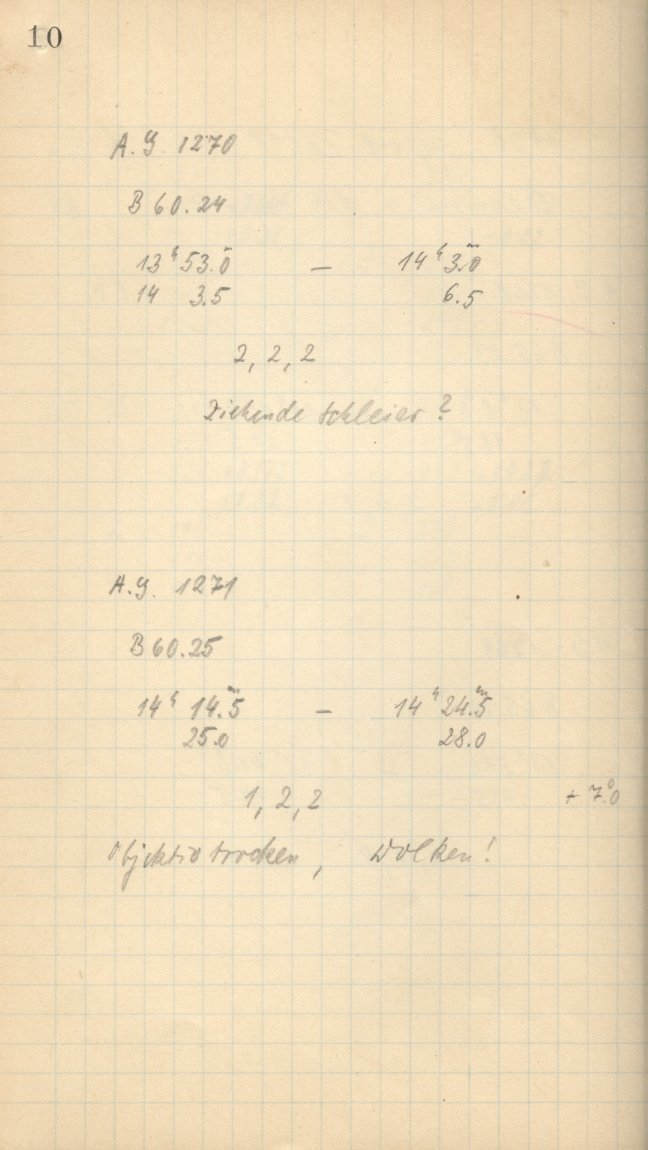 10
A.G 1270
B 60.24
13ʰ 53.ᵐ0 — 14ʰ 3.ᵐ0
14 3.5 6.5
2, 2, 2
Ziehende Schleier?
A.G. 1271
B 60.25
14ʰ 14.ᵐ5 — 14ʰ 24.ᵐ5
25.0 28.0
1, 2, 2 + 7.°0
Objektiv trocken, Wolken!